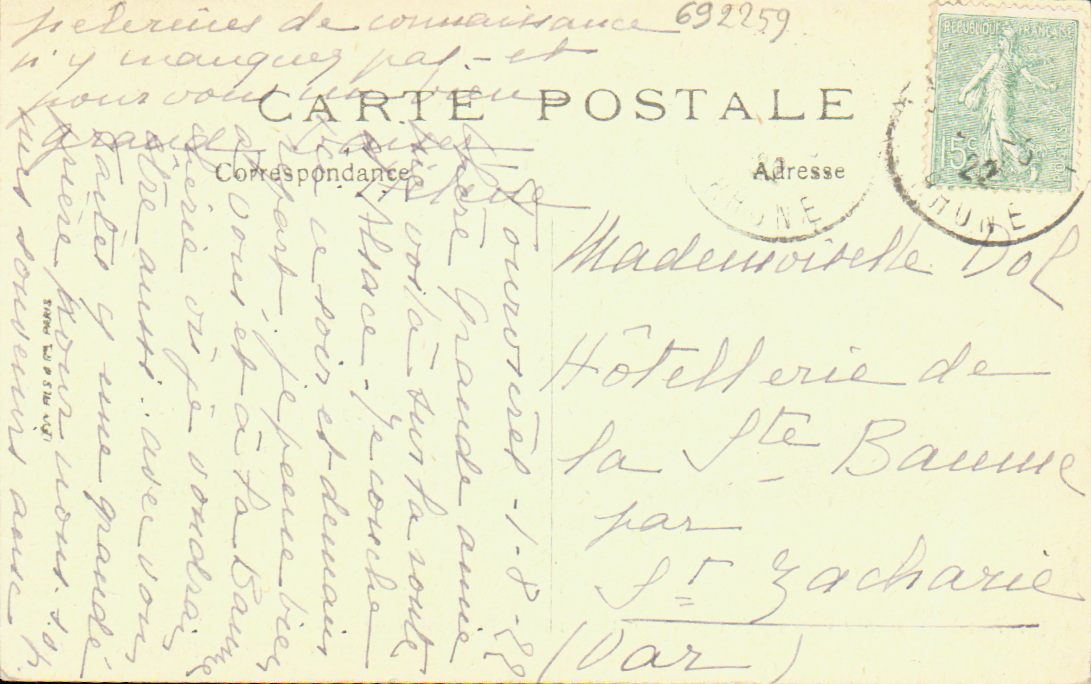 CARTE POSTALE
Correspondance
Adresse
692259
RÉPUBLIQUE FRANÇAISE
15c
POSTES
22
RHONE
RHONE
Mademoiselle Dol
Hôtellerie de
la Ste Baume
par
St Zacharie
(Var)
Fourvières - 1-8-22
chère Grande amie
voilà sur la route
d'Alsace - Je couche
ce soir et demain
repart. je pense bien
à vous et à la Baume
chérie où je voudrais
être aussi. avec vous
faites y une grande
prière pour nous. S.P.
mes souvenirs aux
pelerines de connaissance
n'y manquez pas - et
pour vous un bien
grand
LEVY FILS & Cie PARIS